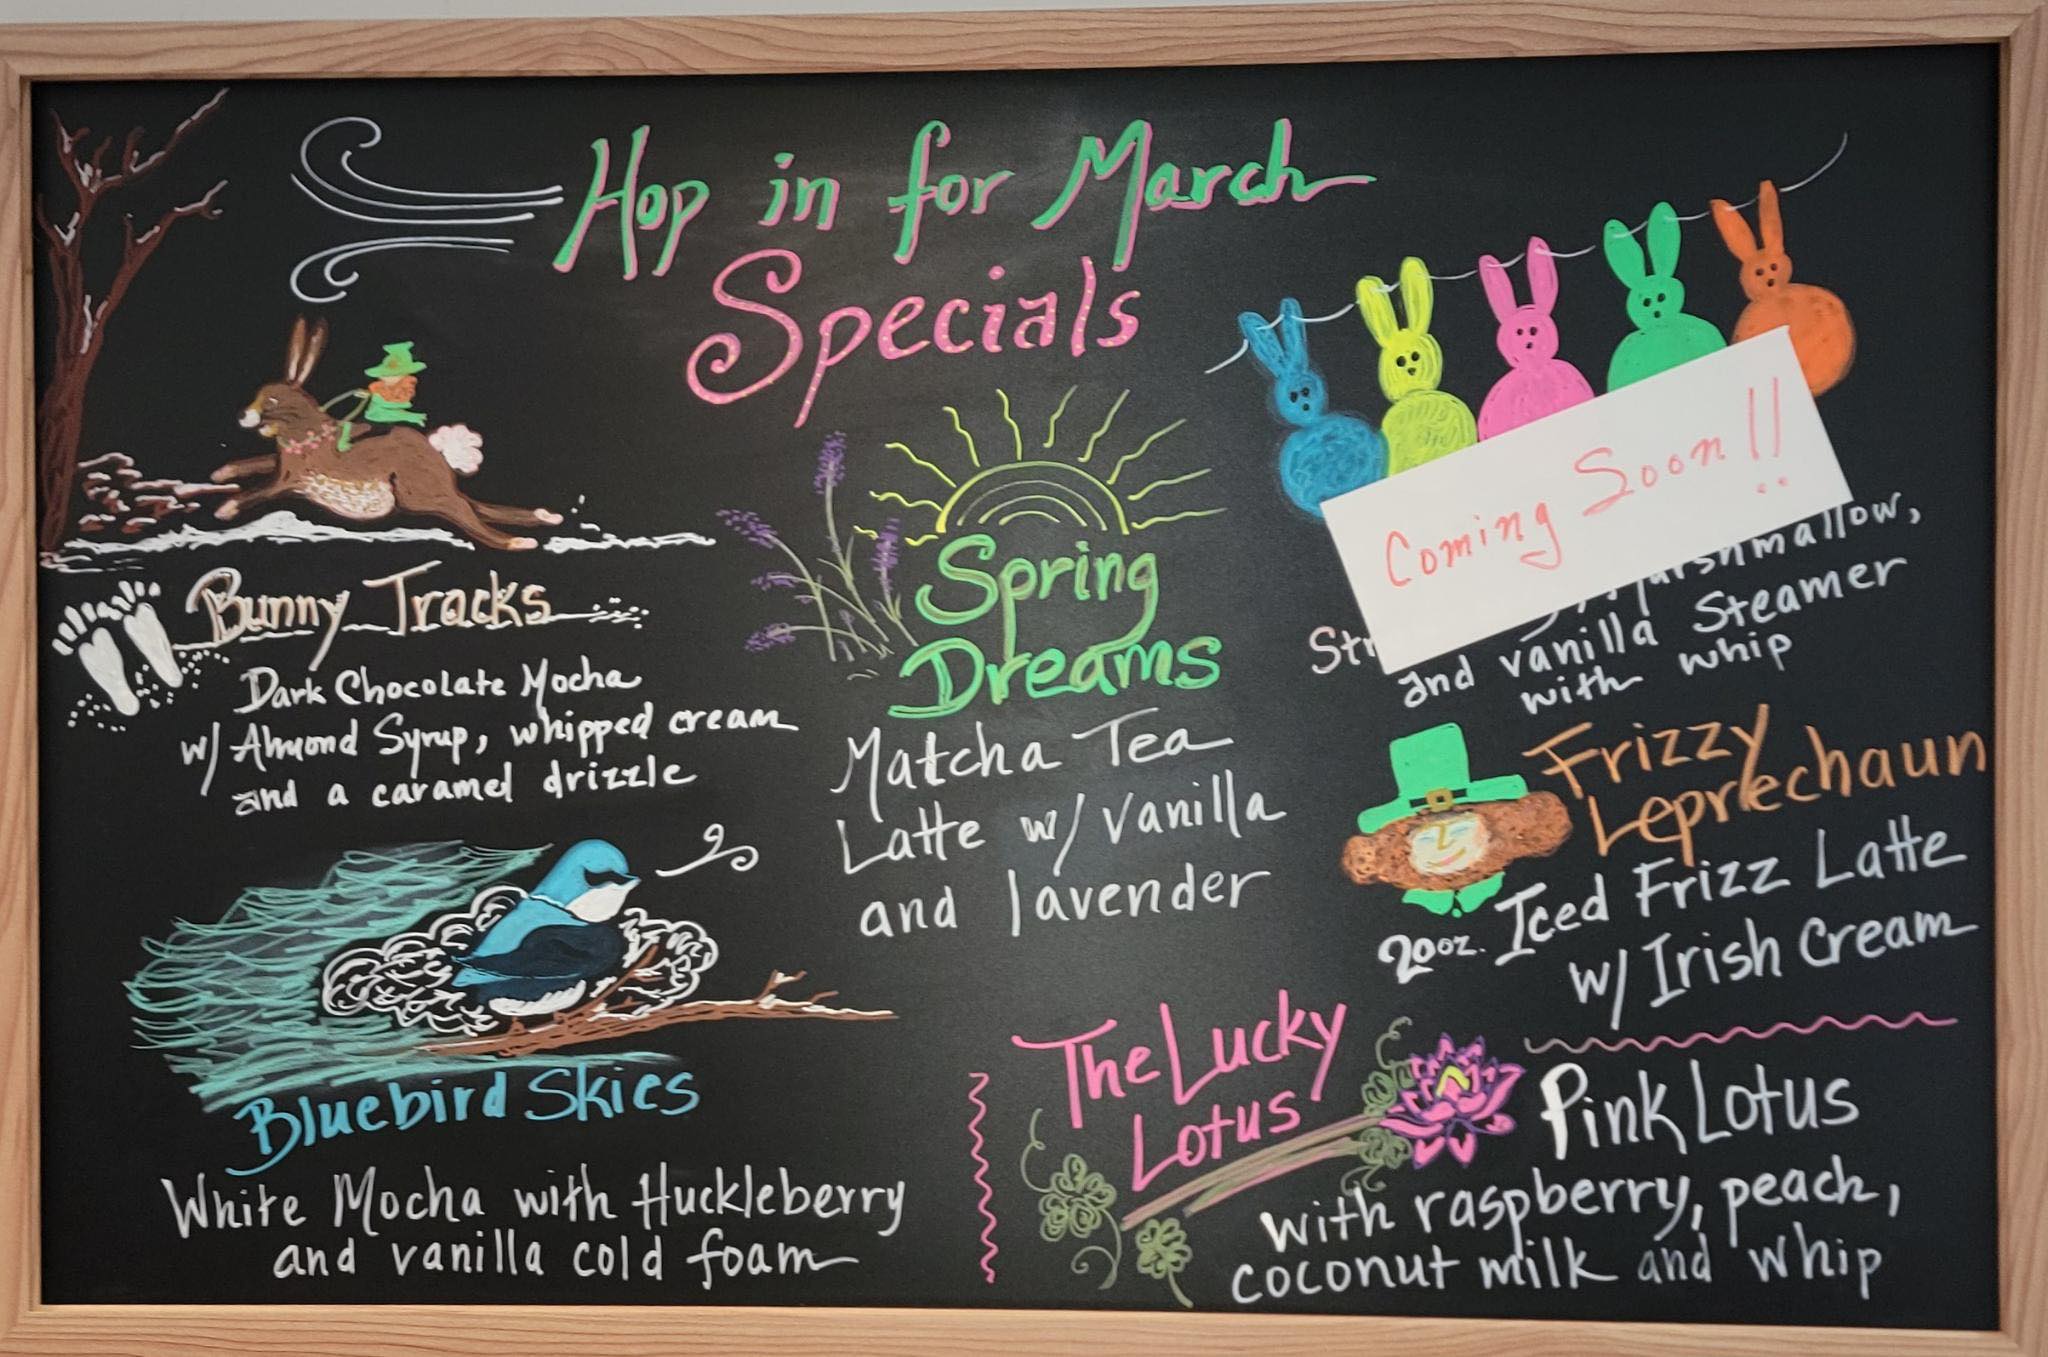 Hop in for March
Specials
Bunny Tracks
Dark Chocolate Mocha
w/ Almond Syrup, whipped cream
and a caramel drizzle
Bluebird Skies
White Mocha with Huckleberry
and vanilla cold foam
Spring
Dreams
Matcha Tea
Latte w/ vanilla
and lavender
Coming Soon!!
and vanilla Steamer
with whip
Frizzy
Leprechaun
20oz. Iced Frizz Latte
w/ Irish Cream
The Lucky
Lotus
Pink Lotus
with raspberry, peach,
coconut milk and whip